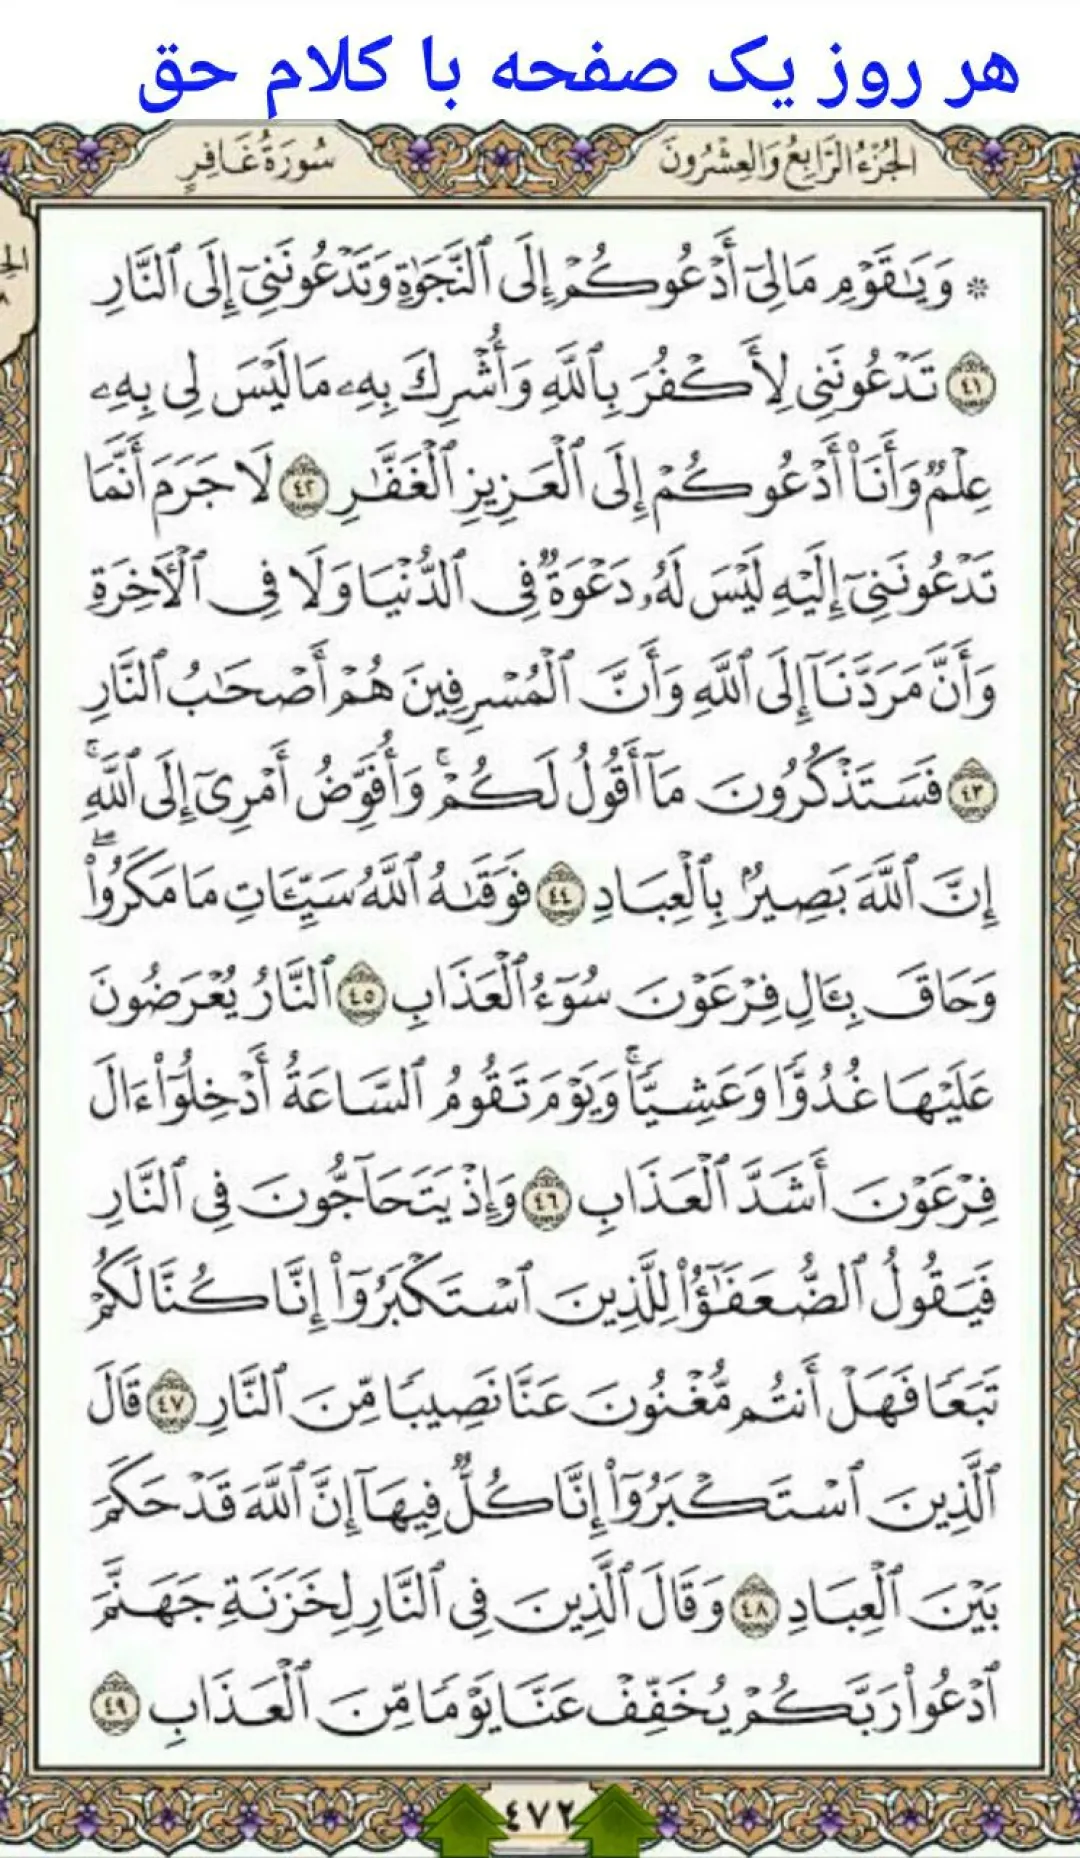 هر روز یک صفحه با کلام حق
الجُزْءُ الرَّابِعُ وَالعِشْرُونَ
سُورَةُ غَافِرٍ
۞ وَيَٰقَوْمِ مَا لِيٓ أَدْعُوكُمْ إِلَى ٱلنَّجَوٰةِ وَتَدْعُونَنِيٓ إِلَى ٱلنَّارِ
٤١ تَدْعُونَنِي لِأَكْفُرَ بِٱللَّهِ وَأُشْرِكَ بِهِۦ مَا لَيْسَ لِي بِهِۦ
عِلْمٌ وَأَنَا۠ أَدْعُوكُمْ إِلَى ٱلْعَزِيزِ ٱلْغَفَّٰرِ ٤٢ لَا جَرَمَ أَنَّمَا
تَدْعُونَنِيٓ إِلَيْهِ لَيْسَ لَهُۥ دَعْوَةٌ فِي ٱلدُّنْيَا وَلَا فِي ٱلْأٓخِرَةِ
وَأَنَّ مَرَدَّنَآ إِلَى ٱللَّهِ وَأَنَّ ٱلْمُسْرِفِينَ هُمْ أَصْحَٰبُ ٱلنَّارِ
٤٣ فَسَتَذْكُرُونَ مَآ أَقُولُ لَكُمْۚ وَأُفَوِّضُ أَمْرِيٓ إِلَى ٱللَّهِۚ
إِنَّ ٱللَّهَ بَصِيرٌۢ بِٱلْعِبَادِ ٤٤ فَوَقَىٰهُ ٱللَّهُ سَيِّـَٔاتِ مَا مَكَرُوا۟ۖ
وَحَاقَ بِـَٔالِ فِرْعَوْنَ سُوٓءُ ٱلْعَذَابِ ٤٥ ٱلنَّارُ يُعْرَضُونَ
عَلَيْهَا غُدُوًّا وَعَشِيًّاۚ وَيَوْمَ تَقُومُ ٱلسَّاعَةُ أَدْخِلُوٓا۟ ءَالَ
فِرْعَوْنَ أَشَدَّ ٱلْعَذَابِ ٤٦ وَإِذْ يَتَحَآجُّونَ فِي ٱلنَّارِ
فَيَقُولُ ٱلضُّعَفَٰٓؤُا۟ لِلَّذِينَ ٱسْتَكْبَرُوٓا۟ إِنَّا كُنَّا لَكُمْ
تَبَعًا فَهَلْ أَنتُم مُّغْنُونَ عَنَّا نَصِيبًا مِّنَ ٱلنَّارِ ٤٧ قَالَ
ٱلَّذِينَ ٱسْتَكْبَرُوٓا۟ إِنَّا كُلٌّ فِيهَآ إِنَّ ٱللَّهَ قَدْ حَكَمَ
بَيْنَ ٱلْعِبَادِ ٤٨ وَقَالَ ٱلَّذِينَ فِي ٱلنَّارِ لِخَزَنَةِ جَهَنَّمَ
ٱدْعُوا۟ رَبَّكُمْ يُخَفِّفْ عَنَّا يَوْمًا مِّنَ ٱلْعَذَابِ ٤٩
٤٧٢